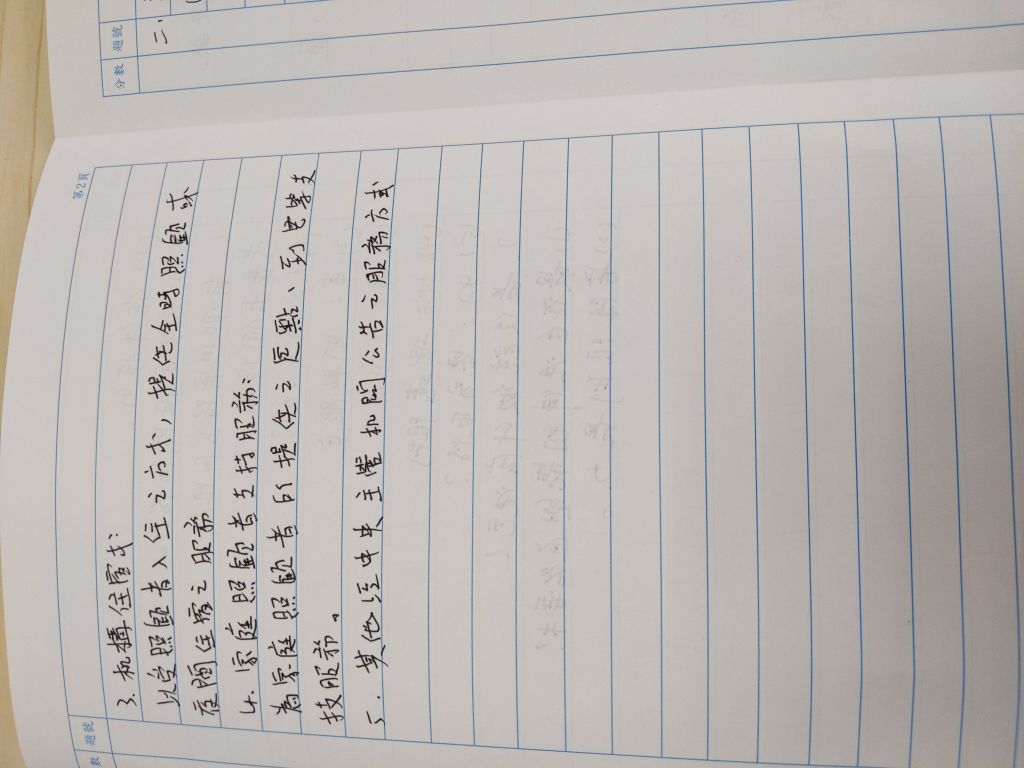 分數 題號
二、
第2頁
數 題號
3. 机構住宿式:
以受照顧者入住之方式,提供全時照顧或
夜間住宿之服務
4. 家庭照顧者支持服務:
為家庭照顧者所提供之定點、到宅等支
持服務。
5. 其他经中央主管机関公告之服務方式